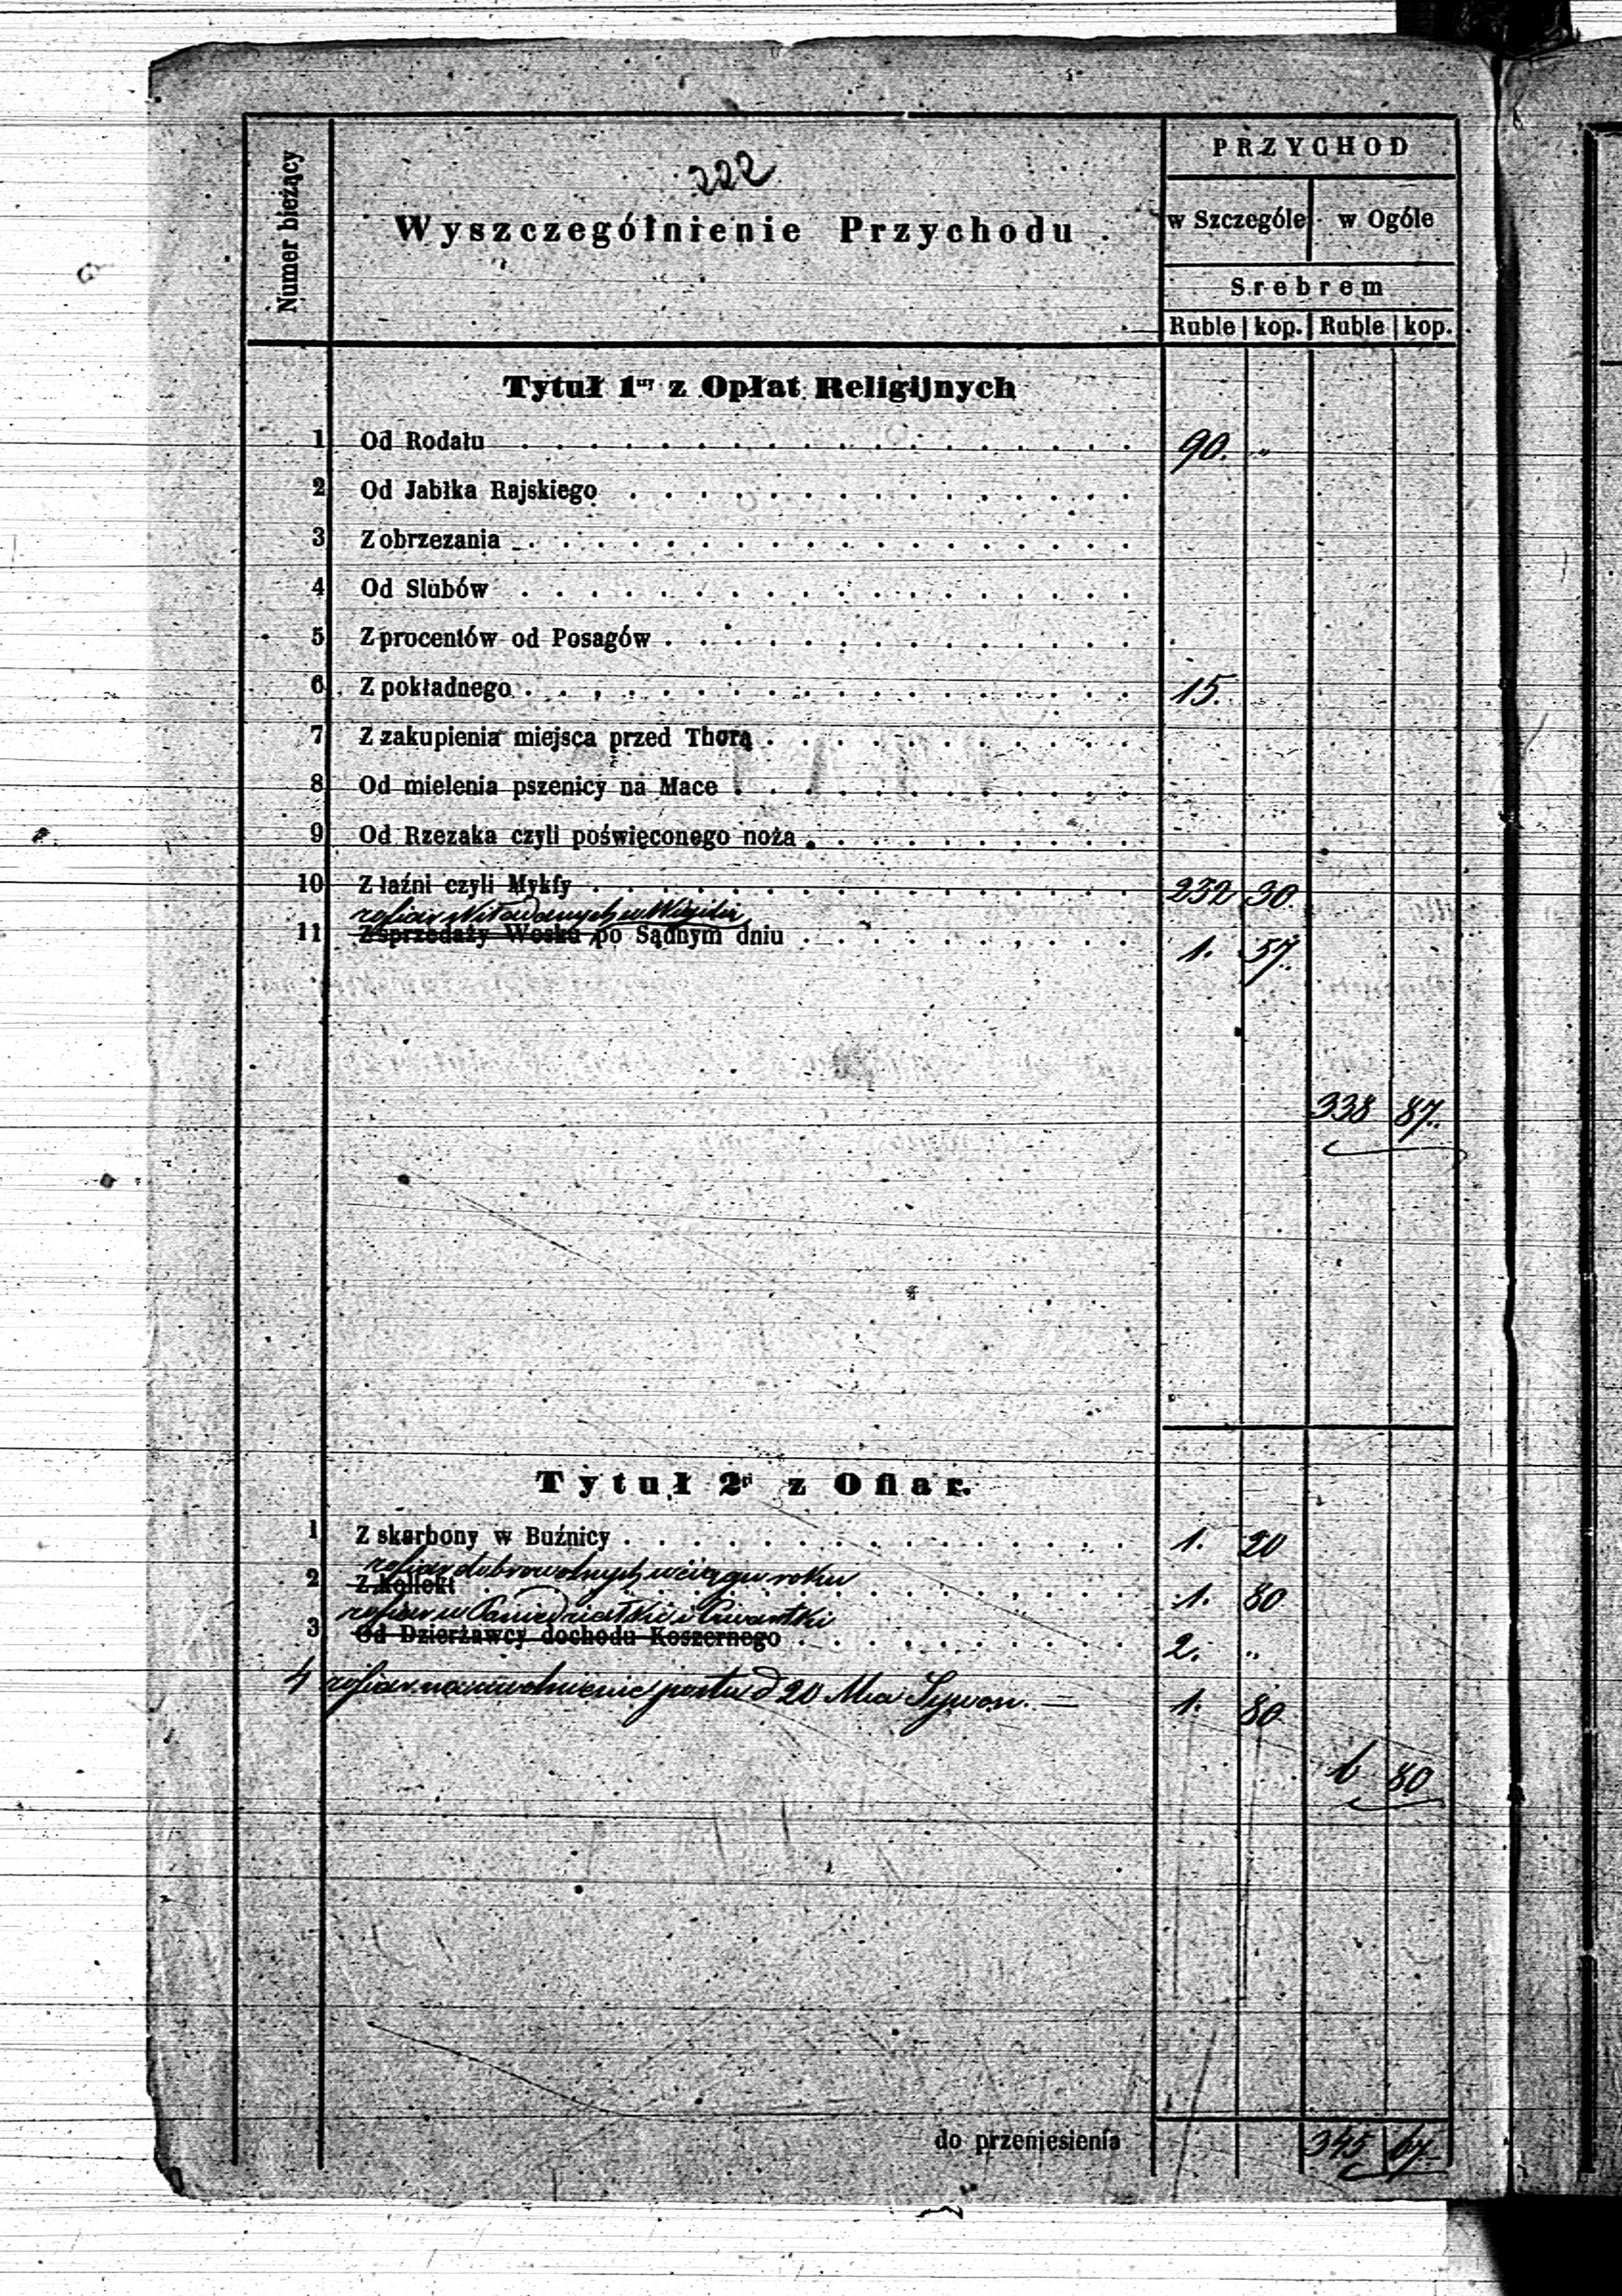 222
Numer bieżący
Wyszczególnienie Przychodu
PRZYCHOD
w Szczególe w Ogóle
Srebrem
Ruble kop. Ruble kop.
Tytuł 1szy z Opłat Religijnych
1 Od Rodału 90. "
2 Od Jabłka Rajskiego
3 Z obrzezania
4 Od Slubów
5 Z procentów od Posagów
6 Z pokładnego 15.
7 Z zakupienia miejsca przed Thorą
8 Od mielenia pszenicy na Mace
9 Od Rzezaka czyli poświęconego noża
10 Z łaźni czyli Mykfy 232 30.
z ofiar w Wigilii
11 Z sprzedaży Wosku po Sądnym dniu 1. 57.
338 87.
Tytuł 2gi z Ofiar.
1 Z skarbony w Buźnicy 1. 20
z ofiar dobrowolnych w ciągu roku
2 Z Kollekt 1. 80
z ofiar w Poniedziałki i Czwartki
3 Od Dzierżawcy dochodu Koszernego 2. "
4 z ofiar na uwolnienie postu d 20 Mca Sywon. 1. 80
6 80
do przeniesienia 345 67